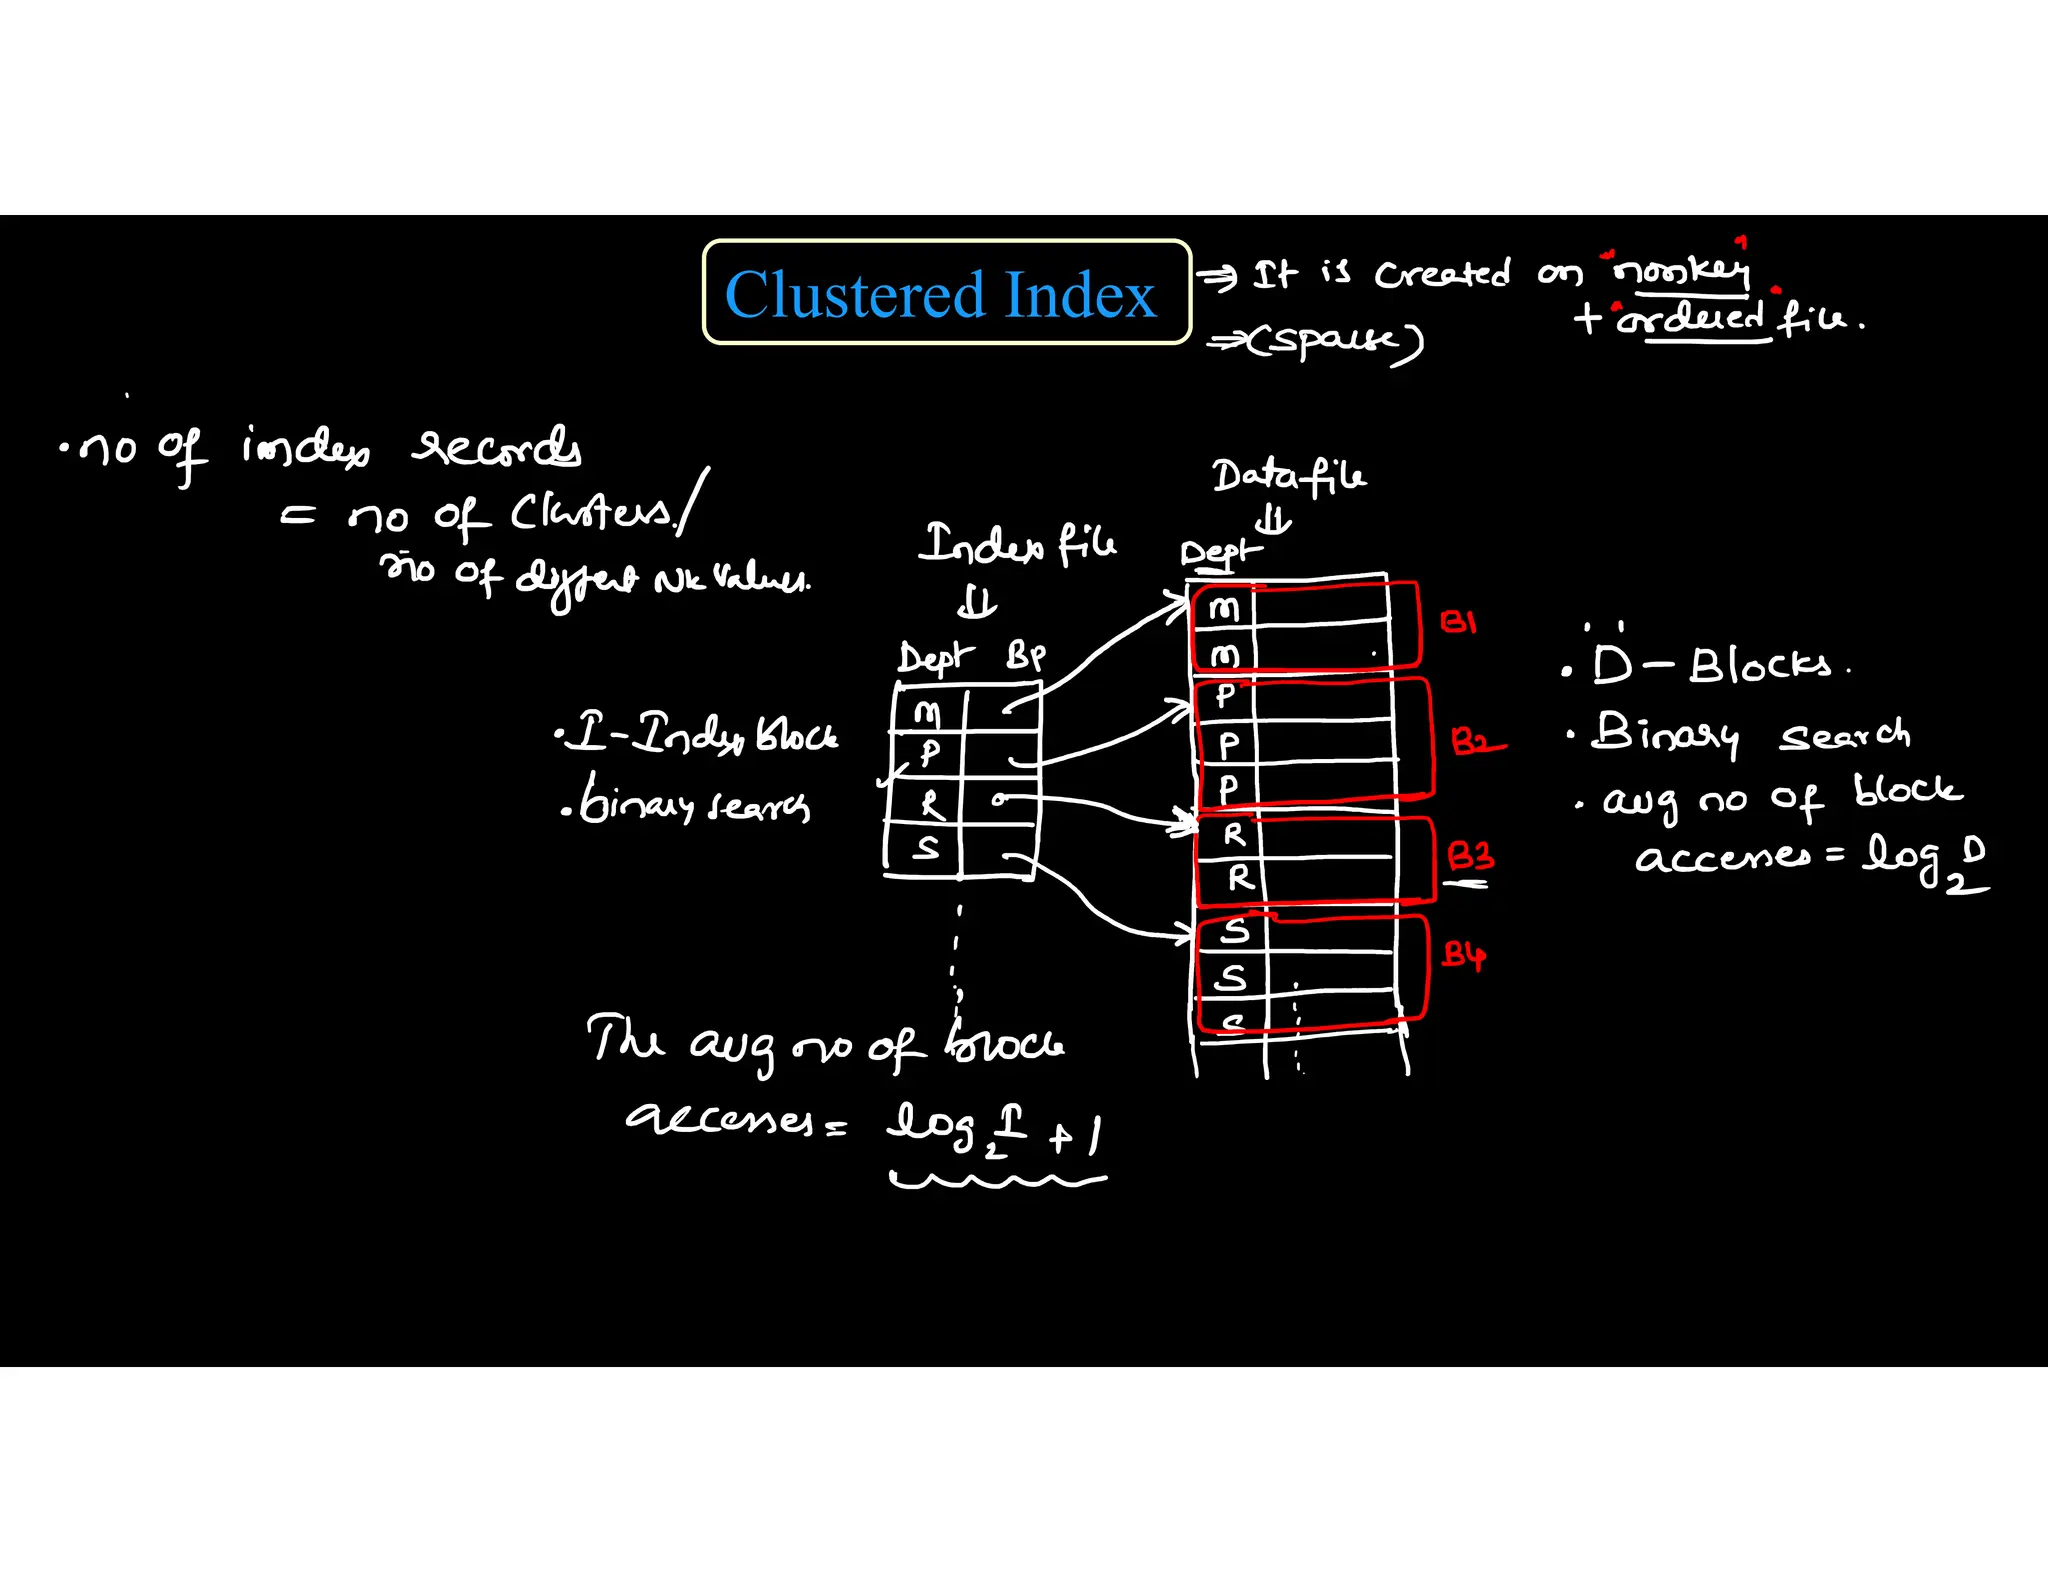 Clustered Index
⇒ It is created on "nonkey"
+ "ordered" file.
⇒ (sparse)
• no of index records
= no of clusters /
no of different NK values.
Data file
⇓
Index file
⇓
Dept
Dept BP
M
P
R
S
M
M
P
P
P
R
R
S
S
S
B1
B2
B3
B4
• I - Index block
• binary search
• D - Blocks.
• Binary search
• avg no of block
accesses = log₂ D
The avg no of block
accesses = log₂ I + 1